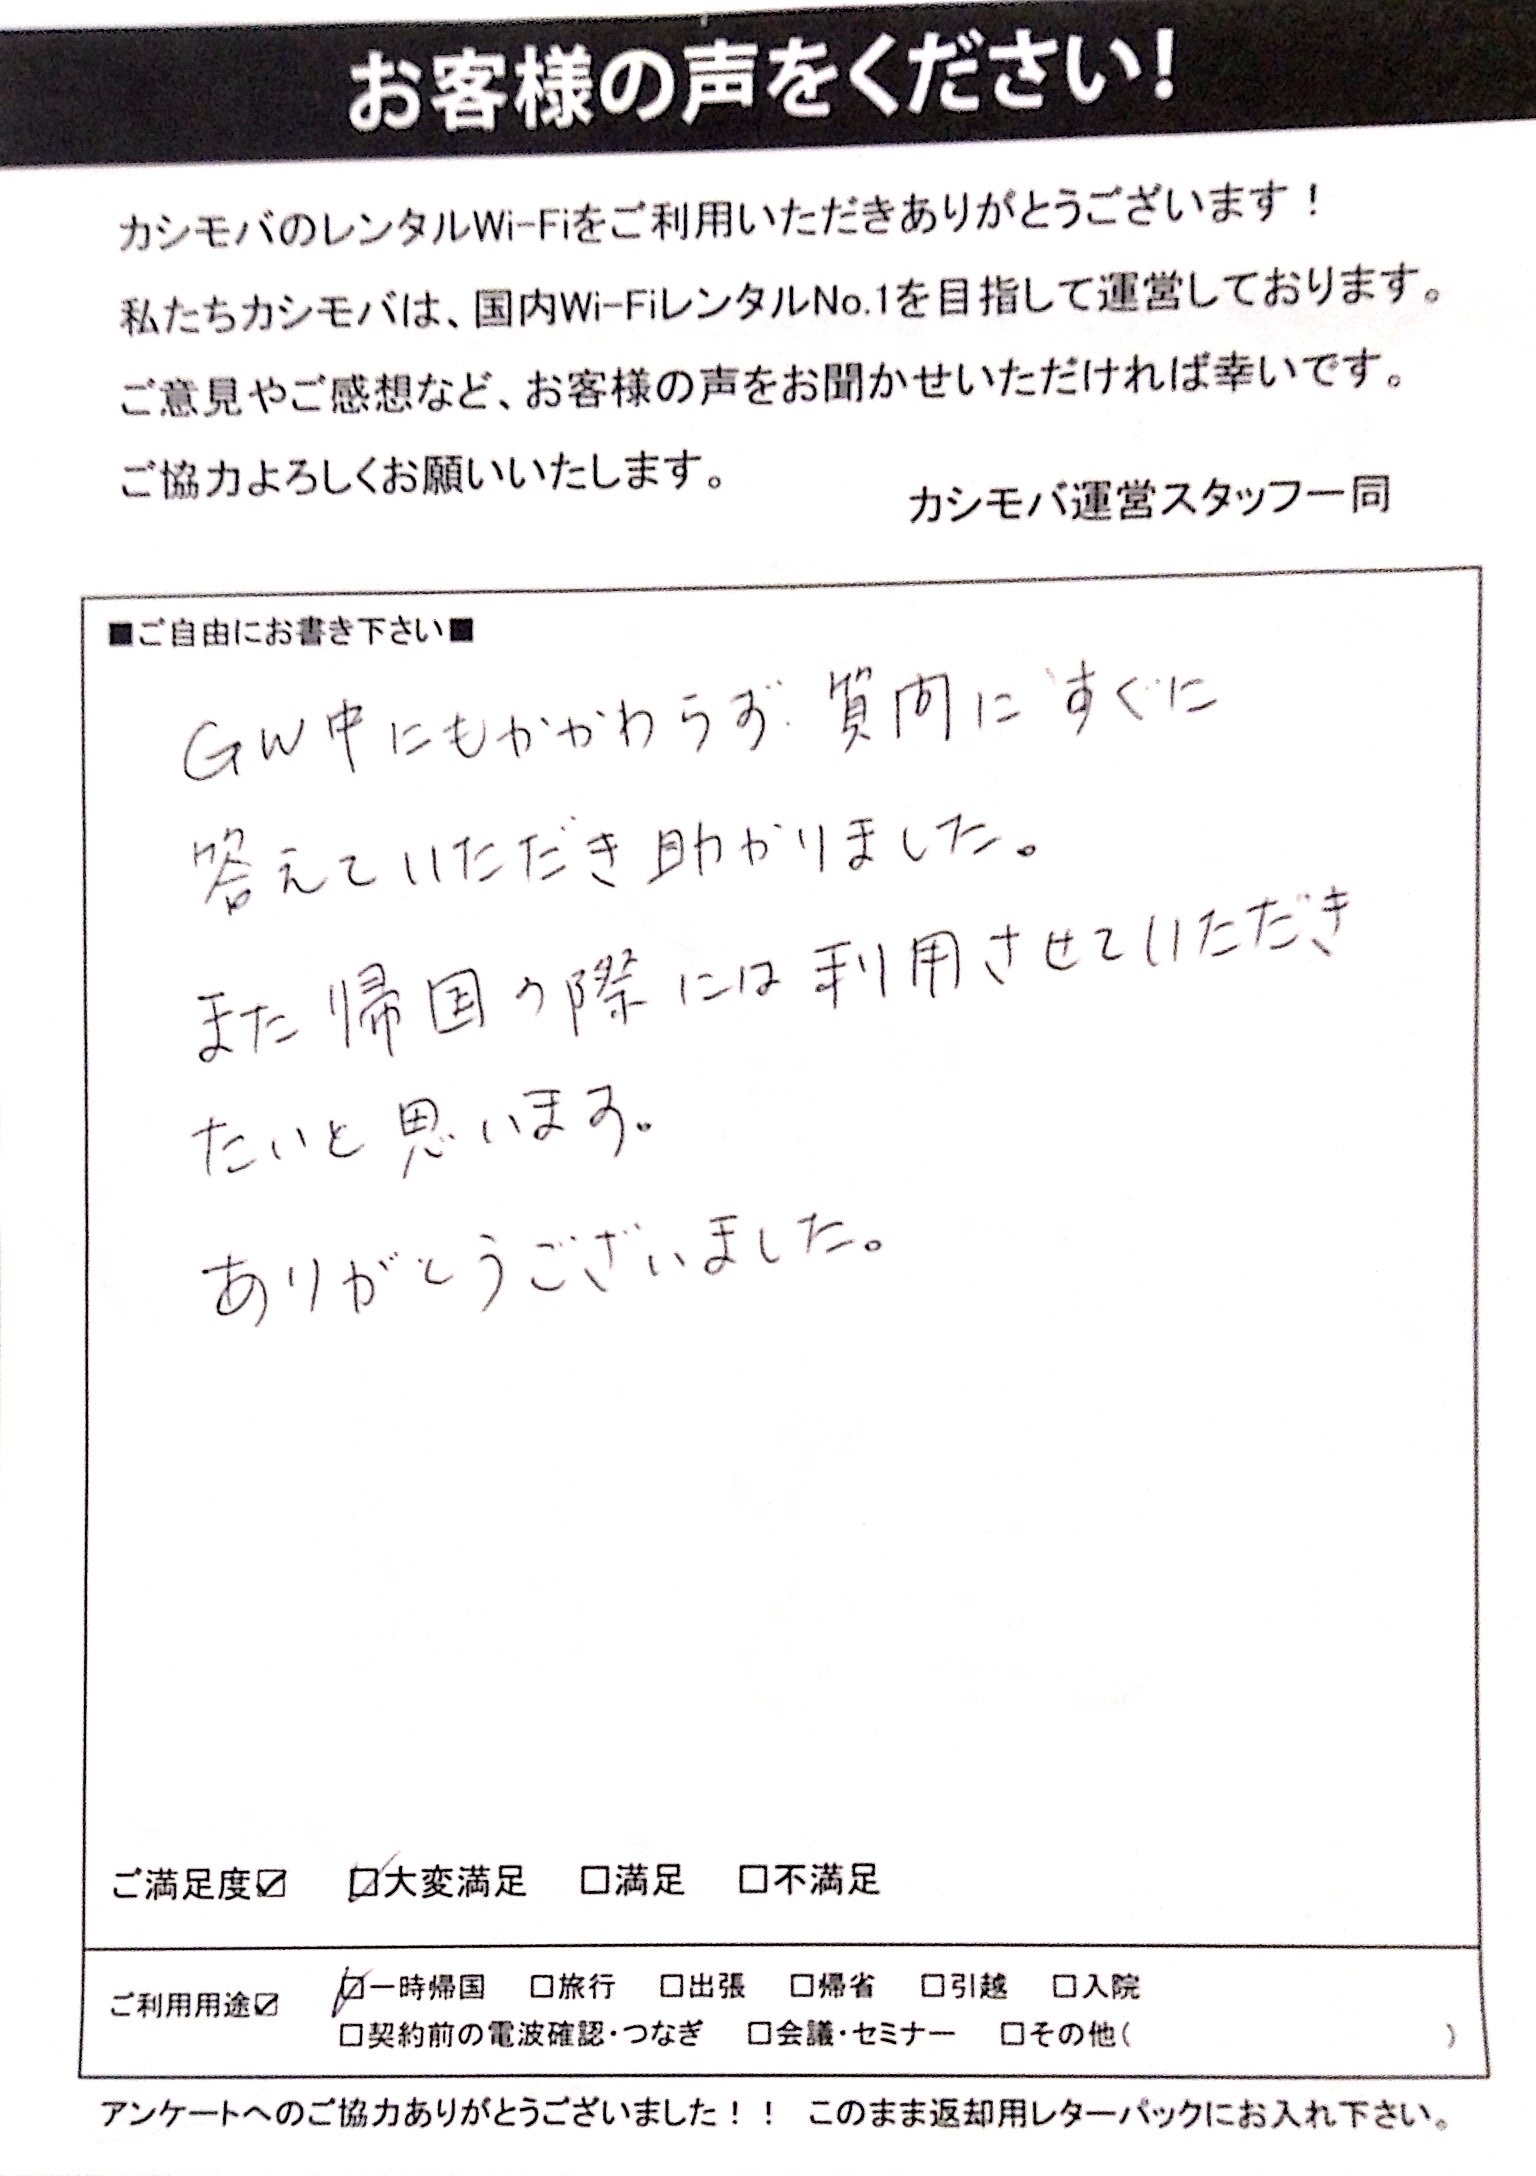 お客様の声をください！
カシモバのレンタルWi-Fiをご利用いただきありがとうございます！
私たちカシモバは、国内Wi-FiレンタルNo.1を目指して運営しております。
ご意見やご感想など、お客様の声をお聞かせいただければ幸いです。
ご協力よろしくお願いいたします。
カシモバ運営スタッフ一同
■ご自由にお書き下さい■
GW中にもかかわらず、質問にすぐに
答えていただき助かりました。
また帰国の際には利用させていただき
たいと思います。
ありがとうございました。
ご満足度☑ ☑大変満足 □満足 □不満足
ご利用用途☑ ☑一時帰国 □旅行 □出張 □帰省 □引越 □入院
□契約前の電波確認・つなぎ □会議・セミナー □その他( )
アンケートへのご協力ありがとうございました！！ このまま返却用レターパックにお入れ下さい。